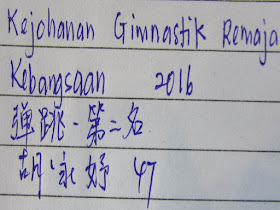 Kejohanan Gimnastik Remaja
Kebangsaan 2016
弹跳-第二名
胡永妤 47